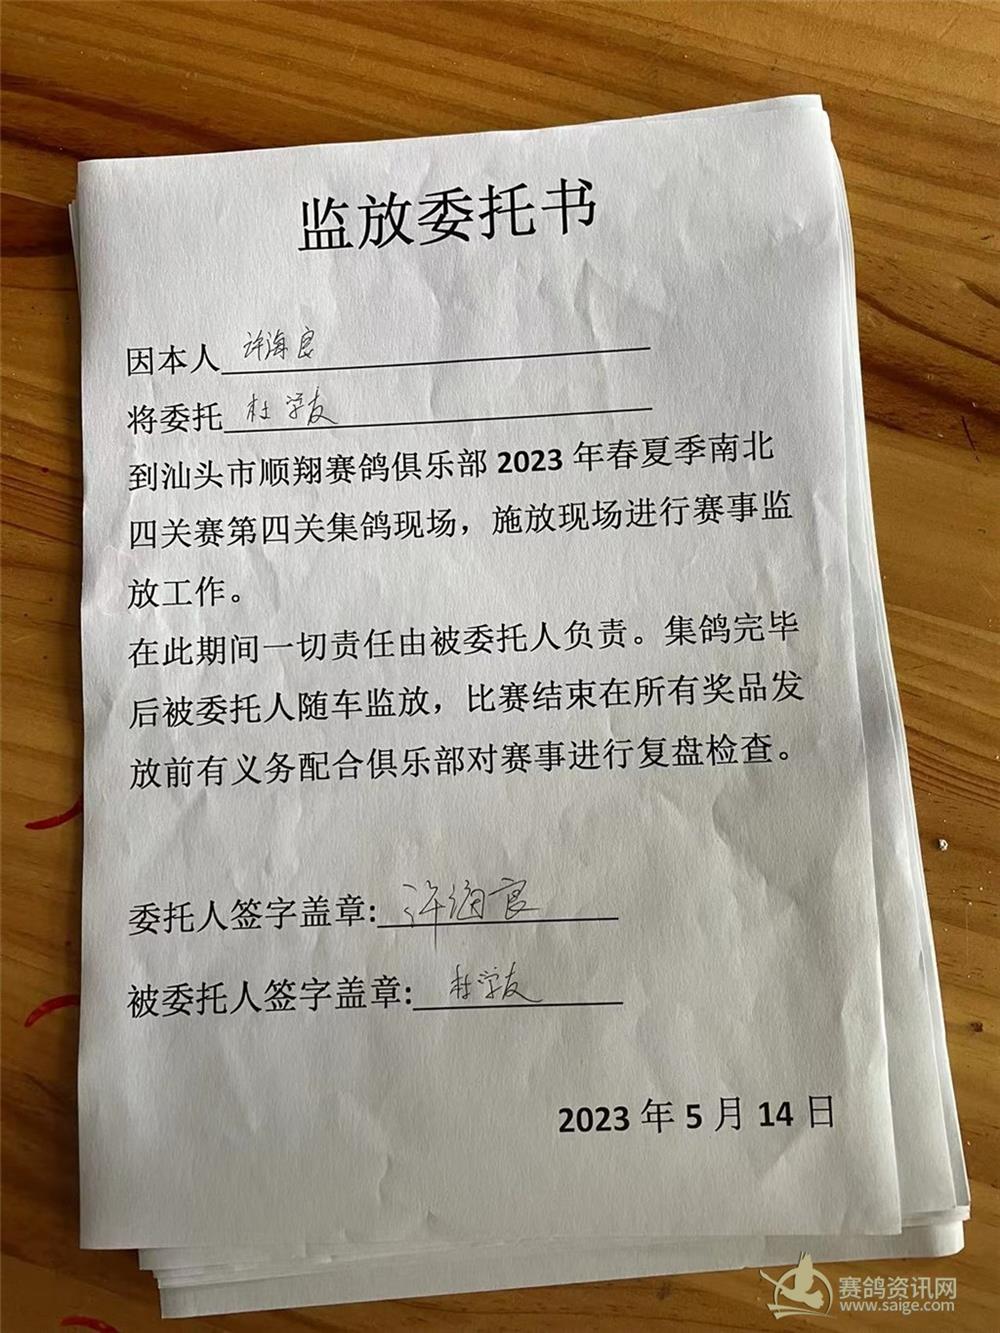 监放委托书
因本人 许海良
将委托 杜学友
到汕头市顺翔赛鸽俱乐部2023年春夏季南北
四关赛第四关集鸽现场，施放现场进行赛事监
放工作。
在此期间一切责任由被委托人负责。集鸽完毕
后被委托人随车监放，比赛结束在所有奖品发
放前有义务配合俱乐部对赛事进行复盘检查。
委托人签字盖章:许海良
被委托人签字盖章:杜学友
2023年5月14日
赛鸽资讯网
www.saige.com